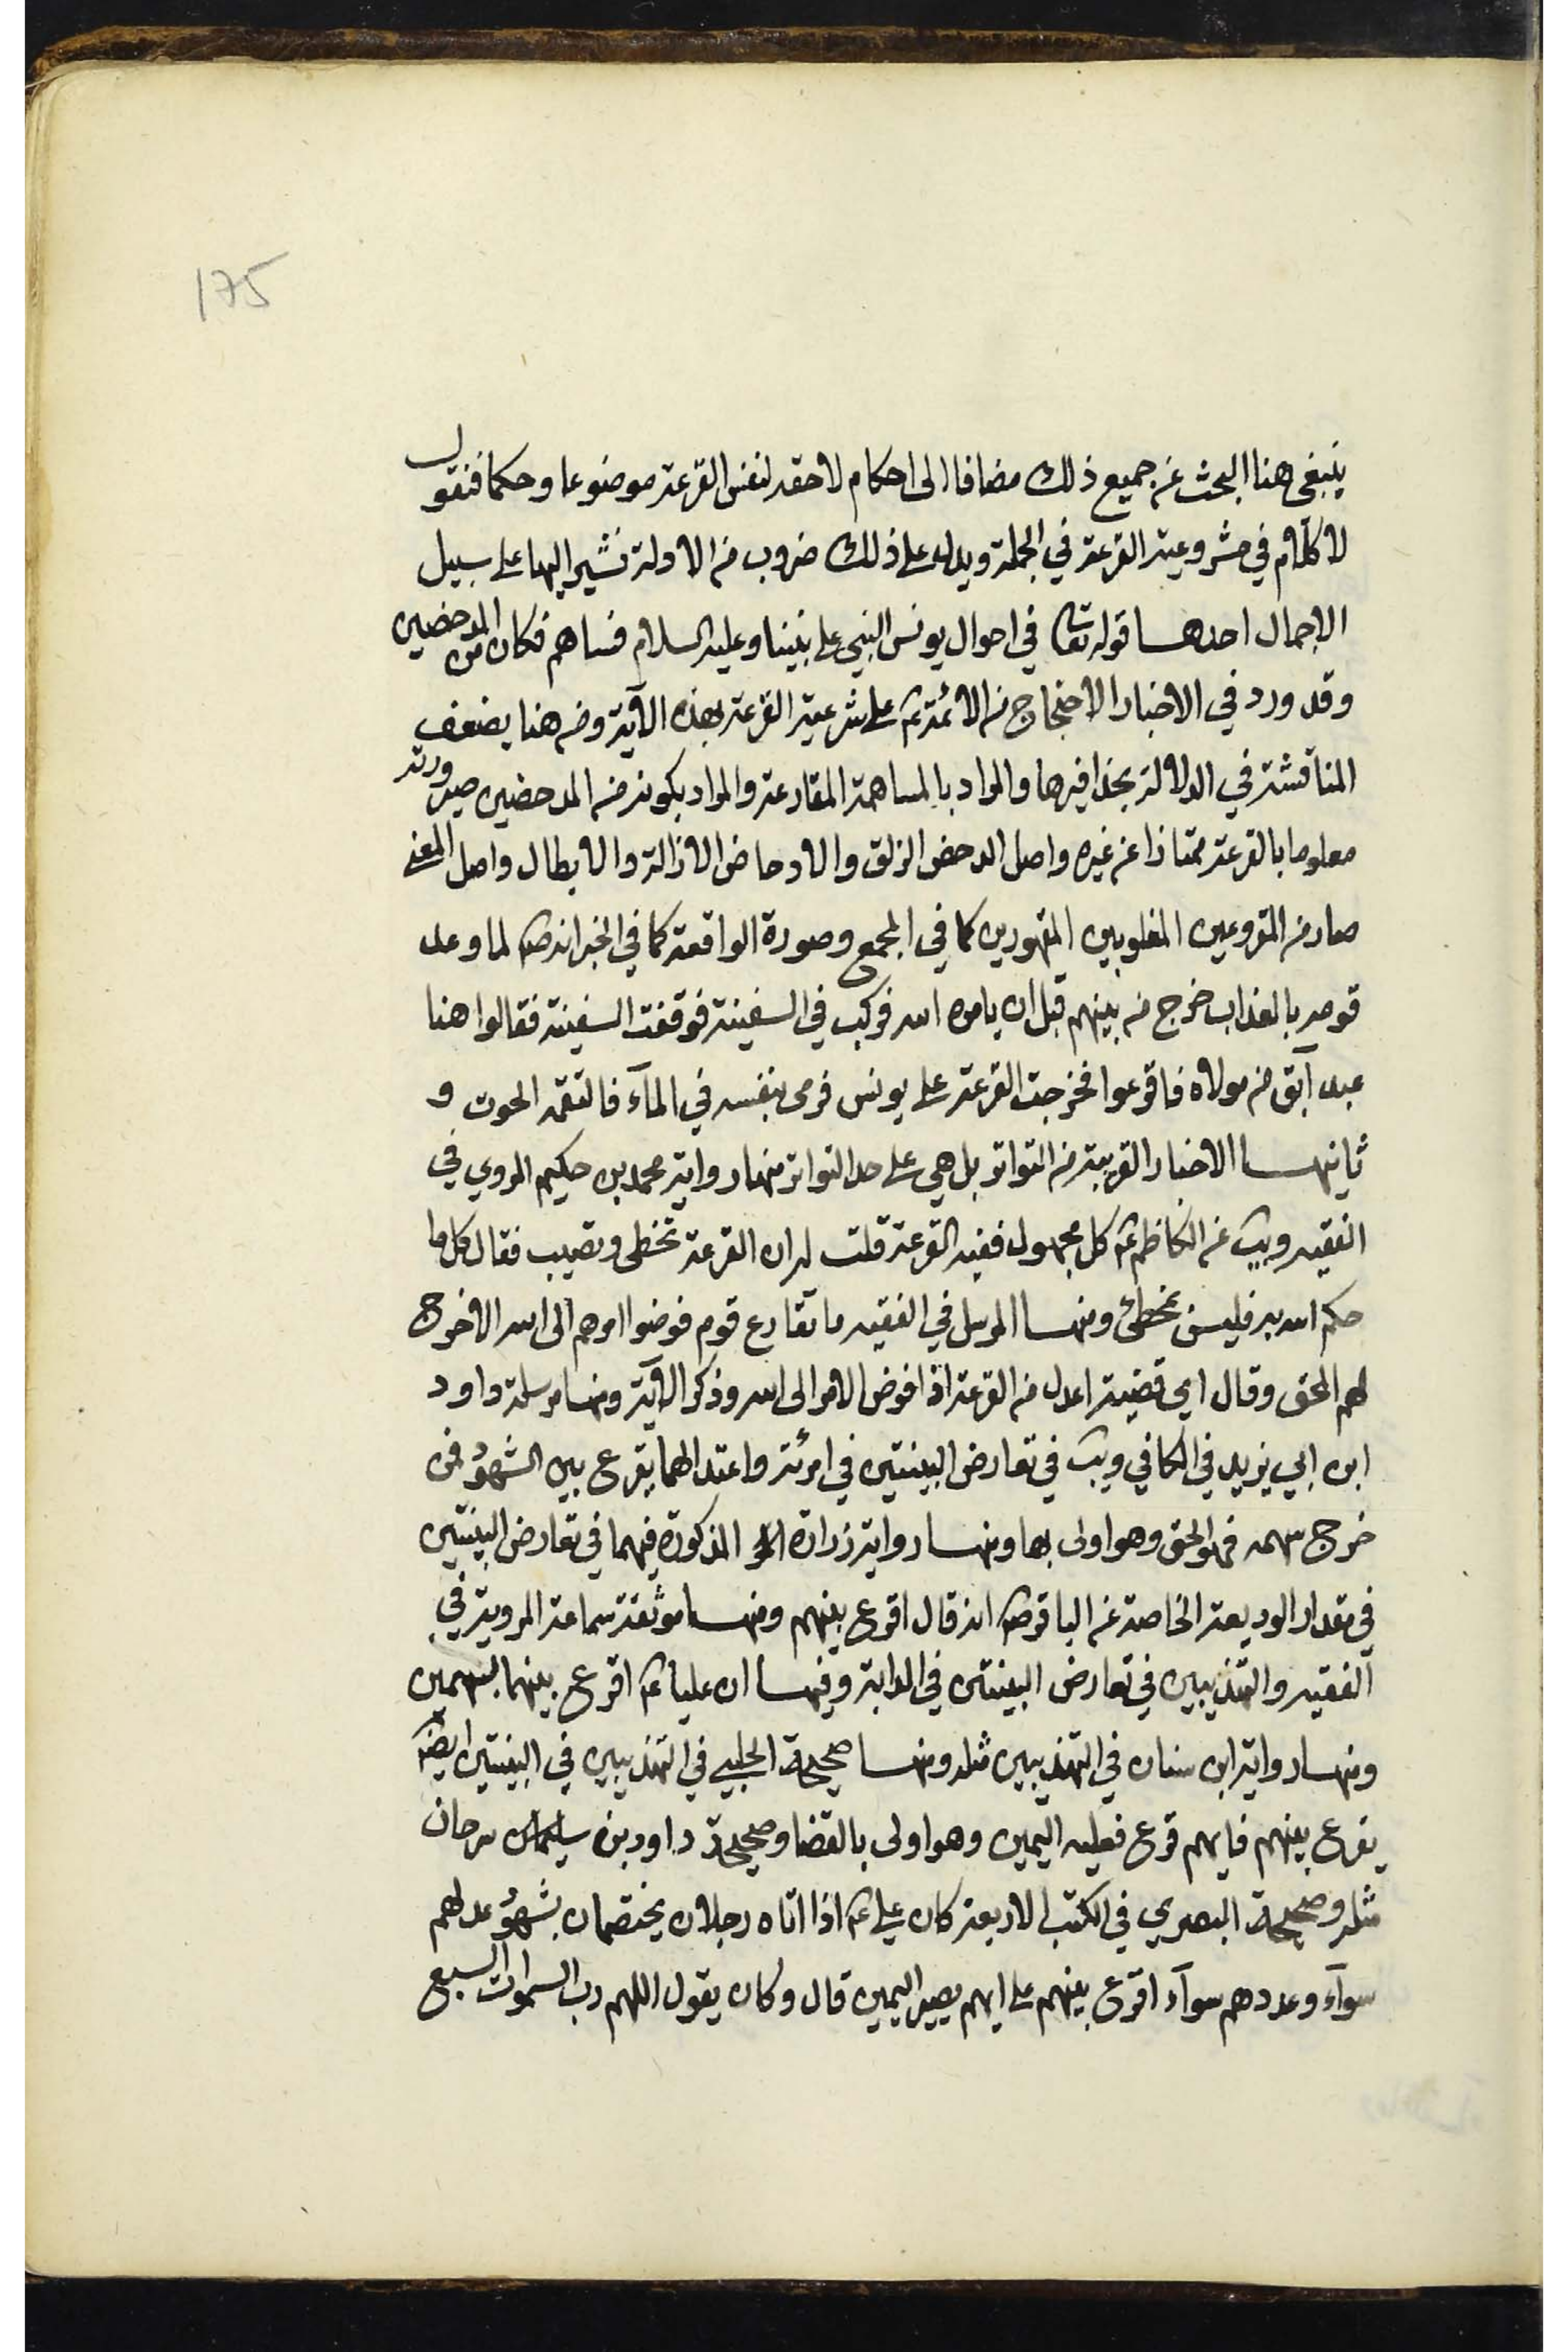 175
ينبغي هنا البحث عن جميع ذلك مضافا الى احكام لاحقة لنفس القرعة موضوعا وحكما فنقول
لا كلام في مشروعية القرعة في الجملة ويدل على ذلك ضروب من الادلة نشير اليها على سبيل
الاجمال احدها قوله تعالى في احوال يونس النبي على نبينا وعليه السلام فساهم فكان من المدحضين
وقد ورد في الاخبار الاحتجاج من الائمة ع على شرعية القرعة بهذه الآية ومن هنا يضعف
المناقشة في الدلالة بحذافيرها والمراد بالمساهمة المقارعة والمراد بكونه من المدحضين صيرورته
معلوما بالقرعة ممتازا عن غيره واصل الدحض الزلق والادحاض الازالة والابطال واصل المعنى
صار من المقروعين المغلوبين المقهورين كما في المجمع وصورة الواقعة كما في الخبر انه ع لما وعد
قومه بالعذاب خرج من بينهم قبل ان يامره الله فركب في السفينة فوقفت السفينة فقالوا هنا
عبد آبق من مولاه فاقرعوا فخرجت القرعة على يونس فرمى بنفسه في المآء فالتقمه الحوت و
ثانيها الاخبار القريبة من التواتر بل هي على حد التواتر منها رواية محمد بن حكيم المروي في
الفقيه ويب عن الكاظم ع كل مجهول ففيه القرعة قلت له ان القرعة تخطى وتصيب فقال كل ما
حكم الله به فليس بمخطئ ومنها المرسل في الفقيه ما تقارع قوم فوضوا امرهم الى الله الا خرج
لهم المحق وقال اي قضية اعدل من القرعة اذا فوض الامر الى الله وذكر الآية ومنها مرسلة داود
ابن ابي يزيد في الكافي ويب في تعارض البينتين في امرئة واعتدالهما يقرع بين الشهود فمن
خرج سهمه فهو المحق وهو اولى بها ومنها رواية زرارة المذكورة فيهما في تعارض البينتين
في مقدار الوديعة الخاصة عن الباقر ع انه قال اقرع بينهم ومنها موثقة سماعة المروية في
الفقيه والتهذيبين في تعارض البينتين في الدابة وفيها ان عليا ع اقرع بينهما بسهمين
ومنها رواية ابن سنان في التهذيبين مثله ومنها صحيحة الحلبي في التهذيبين في البينتين ايضا
يقرع بينهم فايهم قرع فعليه اليمين وهو اولى بالقضا وصحيحة داود بن سرحان
مثله وصحيحة البصري في الكتب الاربعة كان علي ع اذا اتاه رجلان يختصمان بشهود عدلهم
سوآء وعددهم سوآء اقرع بينهم على ايهم يصير اليمين قال وكان يقول اللهم رب السموات السبع